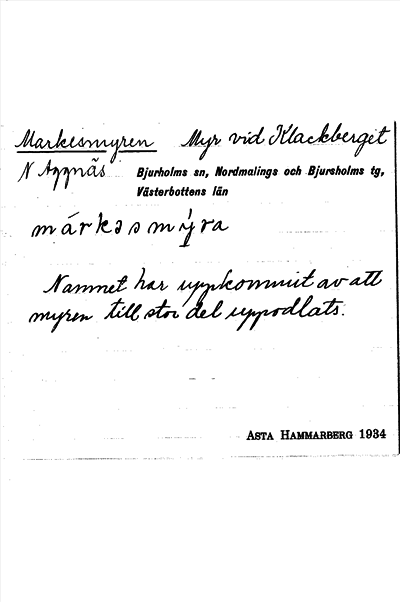 Markesmyren Myr vid Klackberget
N Agnäs Bjurholms sn, Nordmalings och Bjurholms tg,
Västerbottens län
márkəsmy̨ra
Namnet har uppkommit av att
myren till stor del uppodlats.
ASTA HAMMARBERG 1934